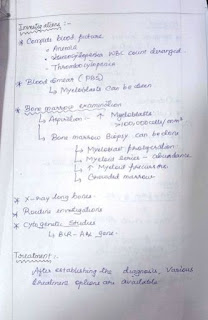 Investigations :-
* Complete blood picture
• Anemia
• Leucocytopenia WBC count deranged
• Thrombocytopenia
* Blood smear (PBS)
↳ Myeloblasts can be seen
* Bone marrow examination
↳ Aspiration :- ↑ Myeloblasts
cells/mm³
↳ Bone marrow Biopsy can be done
↳ Myeloblast proliferation
↳ Myeloid series - abundance
↳ ↑ Myeloid precursors
↳ Crowded marrow
* X-ray long bones
* Routine investigations
* Cytogenetic Studies
↳ BCR-ABL gene
Treatment :-
After establishing the diagnosis, various
treatment options are available